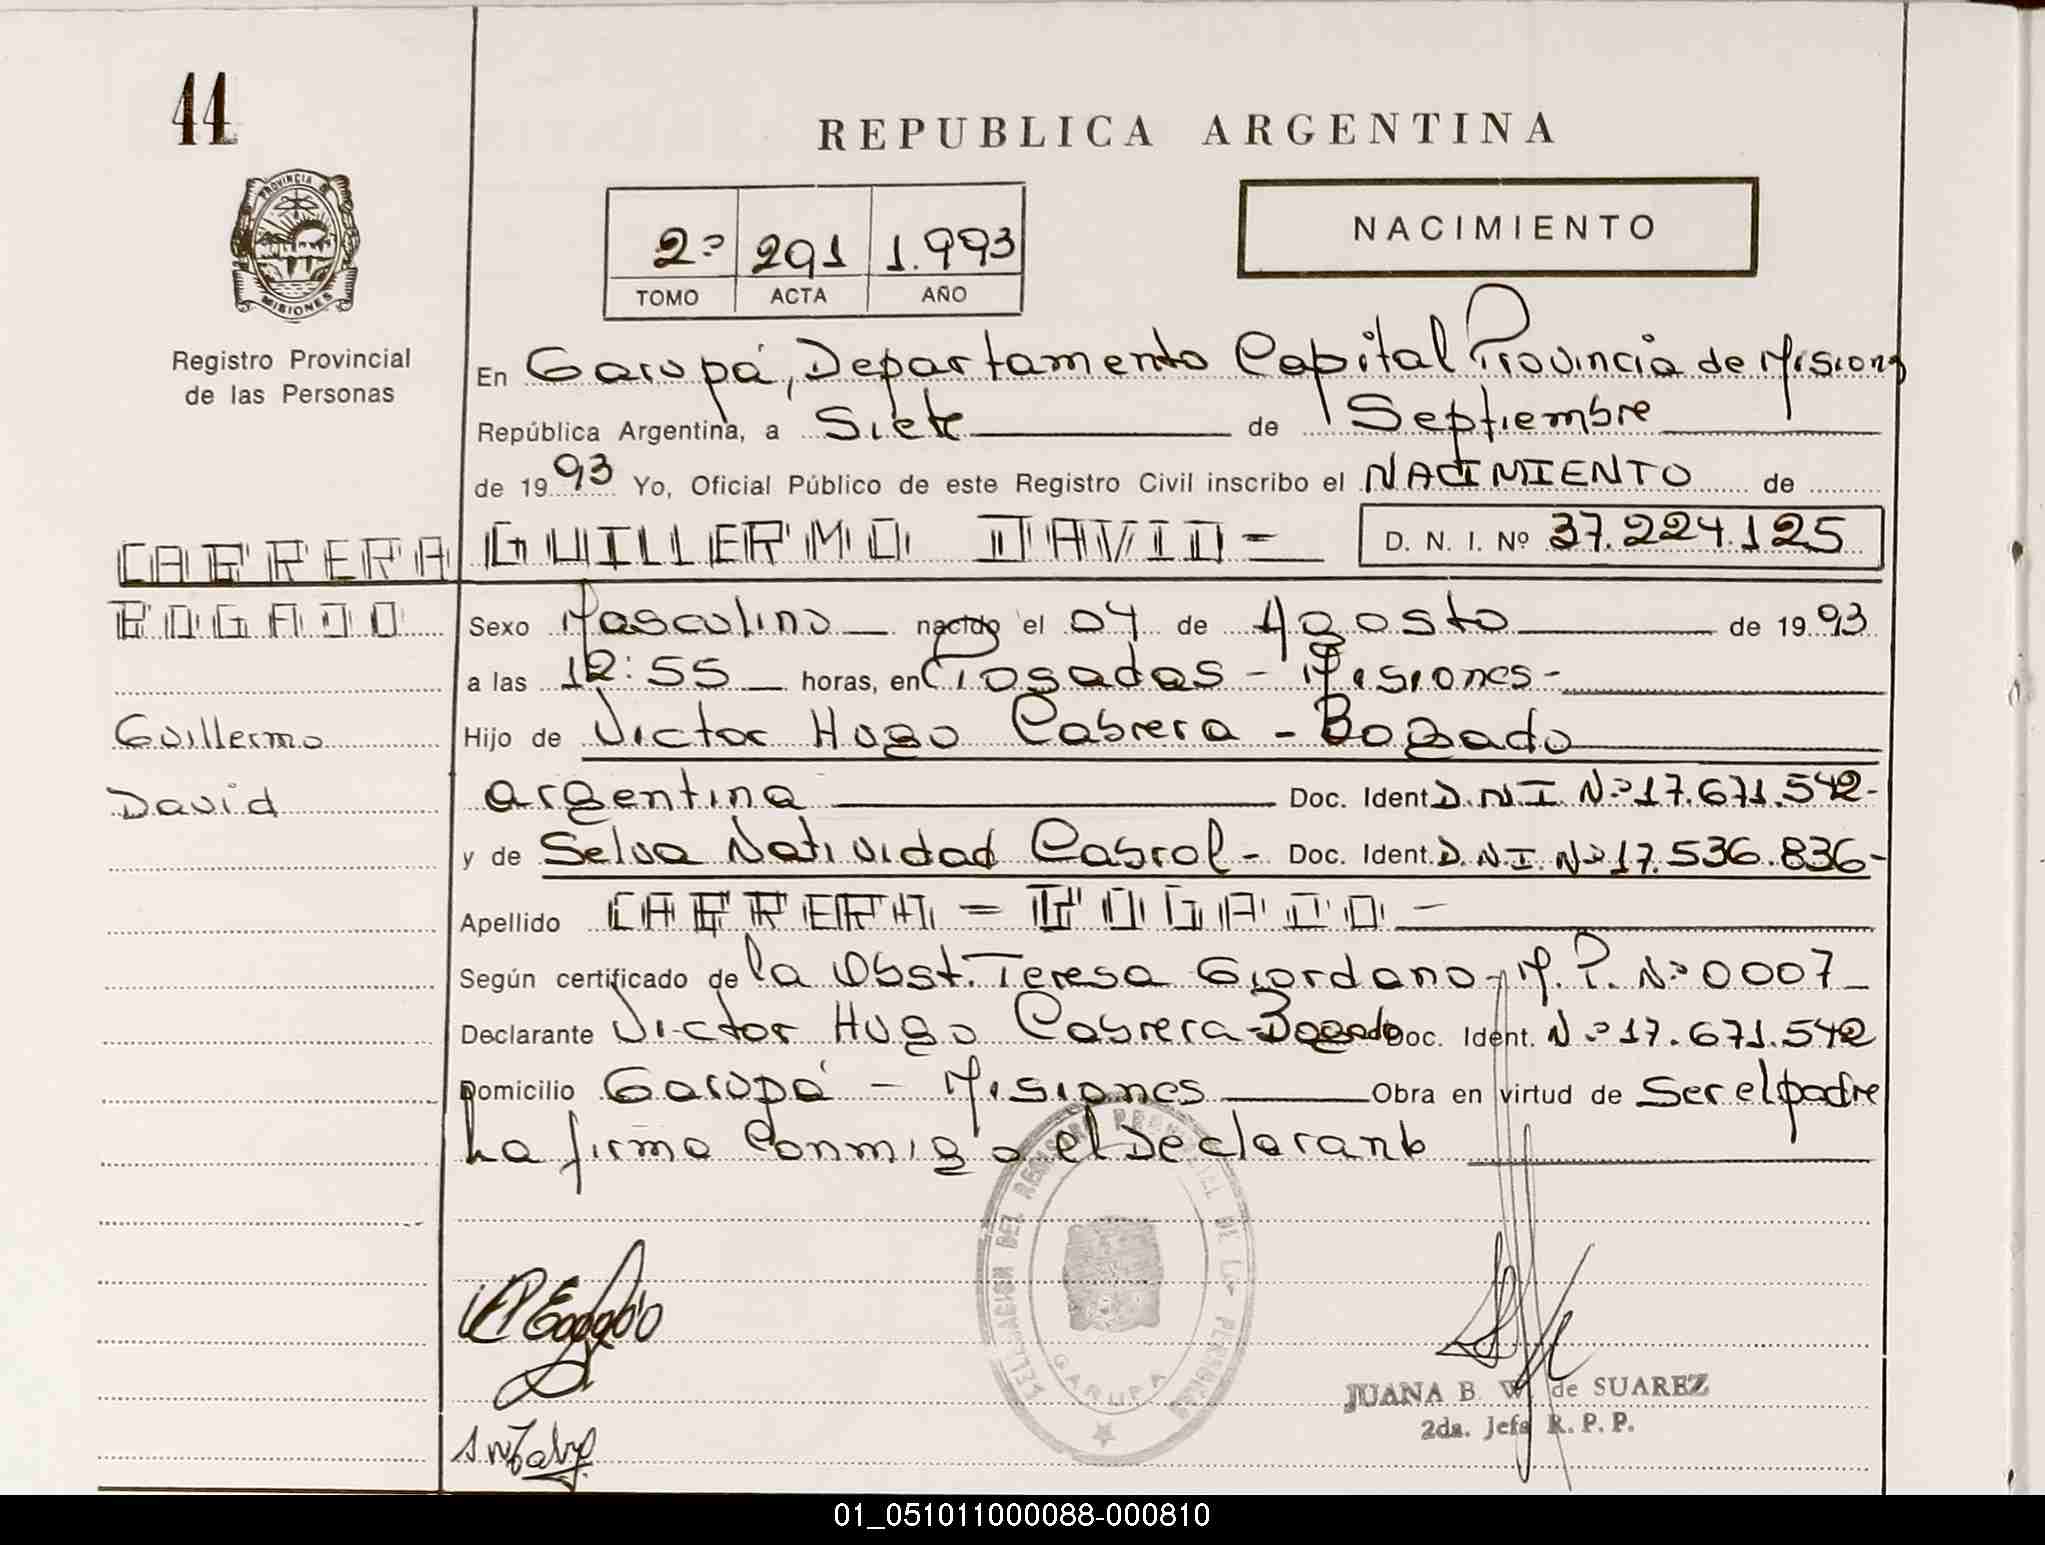 44
REPUBLICA ARGENTINA
PROVINCIA D
MISIONES
Registro Provincial
de las Personas
2º 291 1.993
TOMO ACTA AÑO
NACIMIENTO
En Garupá, Departamento Capital Provincia de Misiones
República Argentina, a Siete de Septiembre
de 1993 Yo, Oficial Público de este Registro Civil inscribo el NACIMIENTO de
CABRERA GUILLERMO DAVID= D. N. I. Nº 37.224.125
BOGADO Sexo Masculino nacido el 04 de Agosto de 1993
a las 12:55 horas, en Posadas - Misiones-
Guillermo Hijo de Victor Hugo Cabrera - Bogado
David argentina Doc. Ident D.N.I Nº 17.671.542-
y de Selva Natividad Cabrol- Doc. Ident. D.N.I. Nº 17.536.836-
Apellido CABRERA = BOGADO -
Según certificado de la Obst. Teresa Giordano-M.P. Nº 0007
Declarante Victor Hugo Cabrera-Bogado Doc. Ident. Nº 17.671.542
Domicilio Garupá - Misiones Obra en virtud de Ser el padre
La firma Conmigo el Declarante
DELEGACION DEL REGISTRO PROVINCIAL DE LAS PERSONAS
GARUPA
JUANA B. W. de SUAREZ
2da. Jefe R. P. P.
01_051011000088-000810